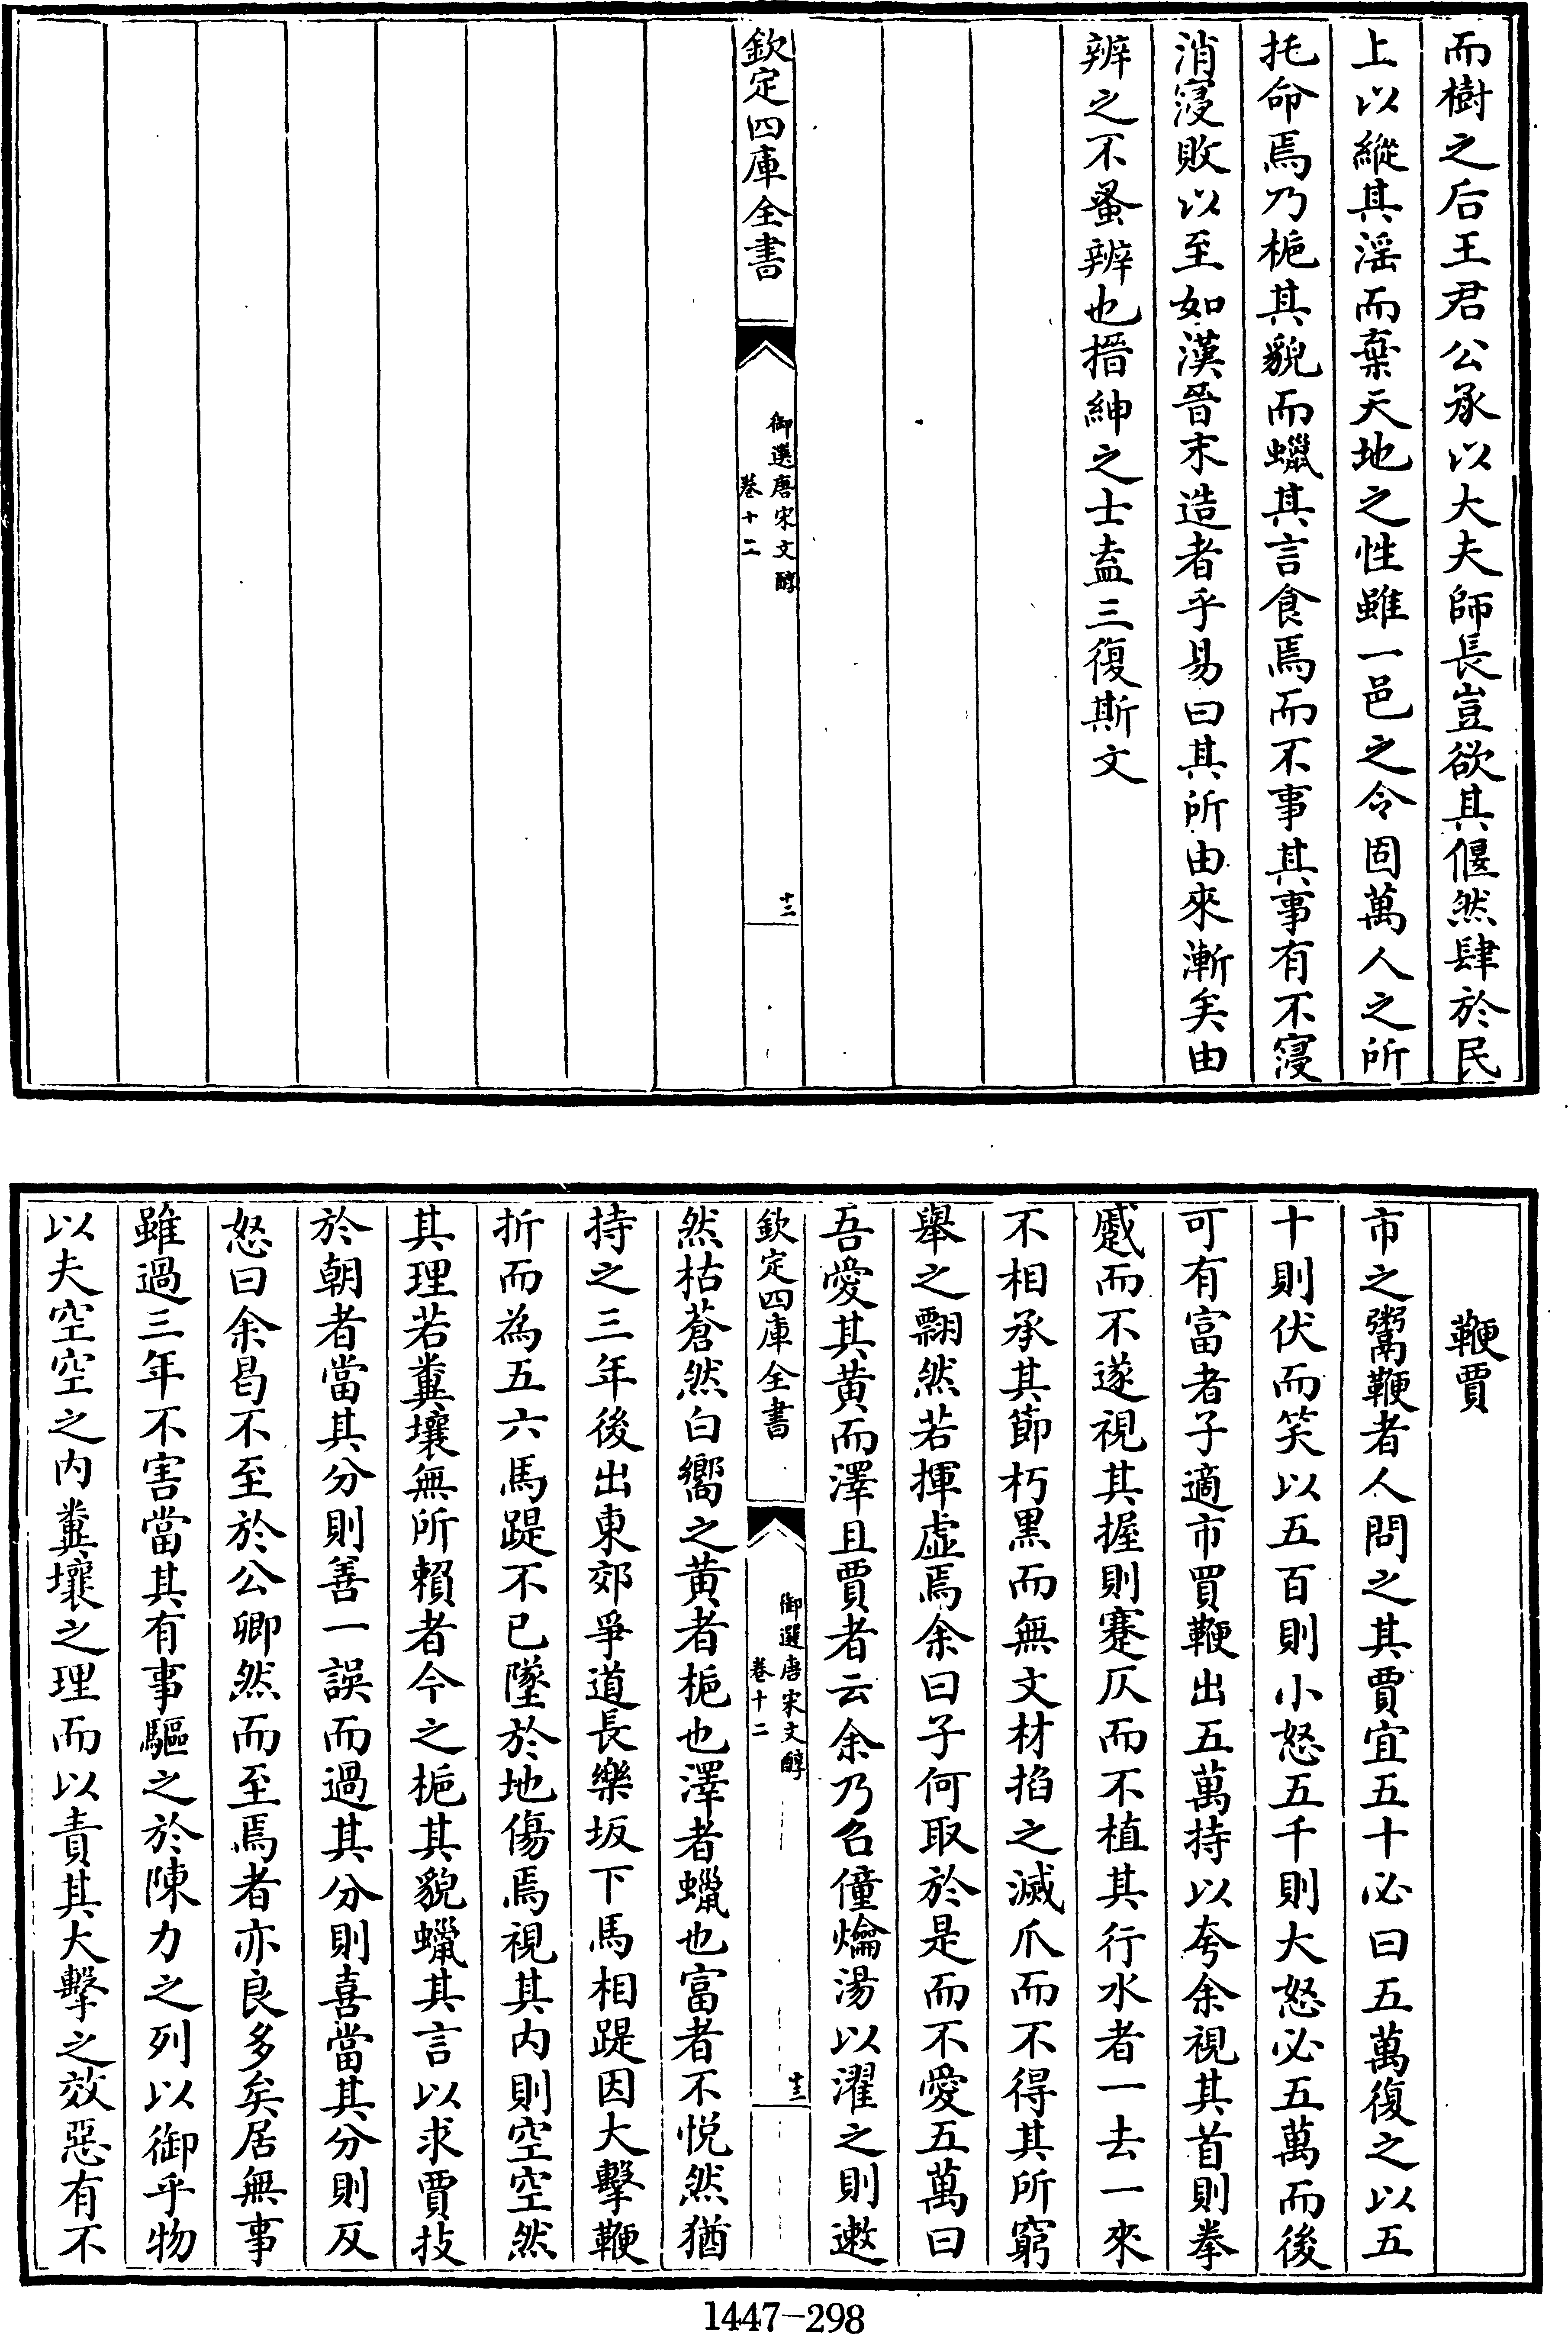 而樹之后王君公承以大夫師長豈欲其偃然肆於民
上以縱其淫而棄天地之性雖一邑之令固萬人之所
托命焉乃栀其貌而蠟其言食焉而不事其事有不寖
消寖敗以至如漢晉末造者乎易曰其所由來漸矣由
辨之不蚤辨也搢紳之士盍三復斯文
欽定四庫全書
御選唐宋文醇
卷十二
十二
鞭賈
市之鬻鞭者人問之其賈宜五十必曰五萬復之以五
十則伏而笑以五百則小怒五千則大怒必五萬而後
可有富者子適市買鞭出五萬持以夸余視其首則拳
蹙而不遂視其握則蹇仄而不植其行水者一去一來
不相承其節朽黑而無文材掐之滅爪而不得其所窮
舉之翲然若揮虛焉余曰子何取於是而不愛五萬曰
吾愛其黃而澤且賈者云余乃召僮爚湯以濯之則遬
欽定四庫全書
御選唐宋文醇
卷十二
十三
然枯蒼然白嚮之黃者栀也澤者蠟也富者不悅然猶
持之三年後出東郊爭道長樂坂下馬相踶因大擊鞭
折而為五六馬踶不已墜於地傷焉視其內則空空然
其理若糞壤無所賴者今之栀其貌蠟其言以求賈技
於朝者當其分則善一誤而過其分則喜當其分則反
怒曰余曷不至於公卿然而至焉者亦良多矣居無事
雖過三年不害當其有事驅之於陳力之列以御乎物
以夫空空之內糞壤之理而以責其大擊之效惡有不
1447-298